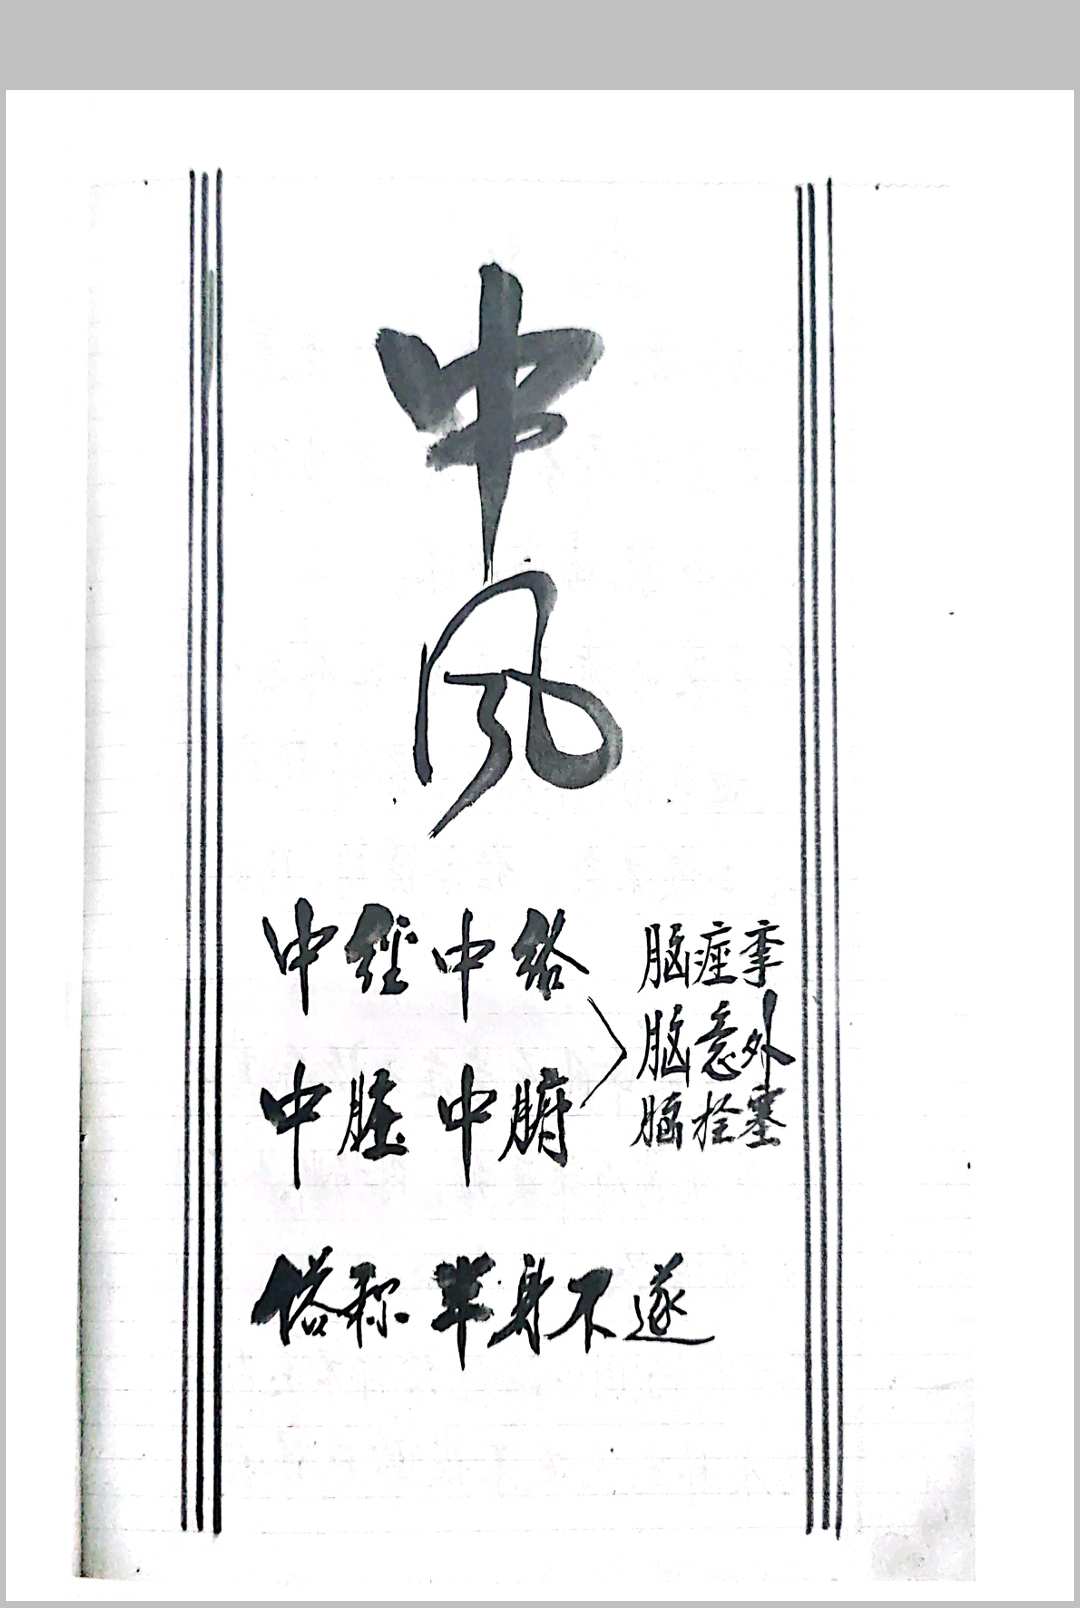 中
风
中经中络
中脏中腑
脑痉挛
脑意外
脑栓塞
俗称半身不遂